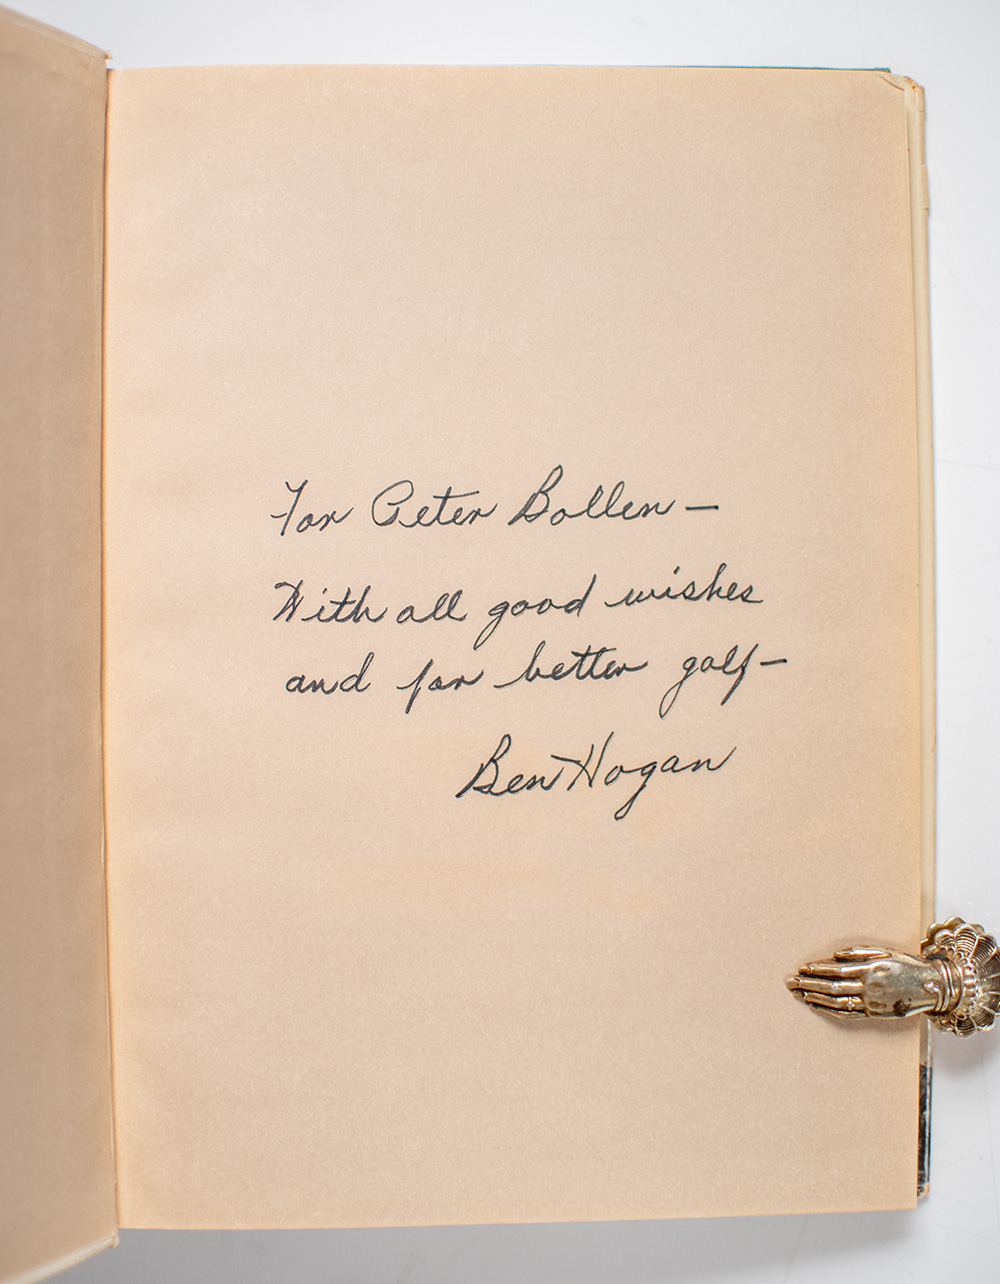 For Peter Bollen —
With all good wishes
and for better golf —
Ben Hogan